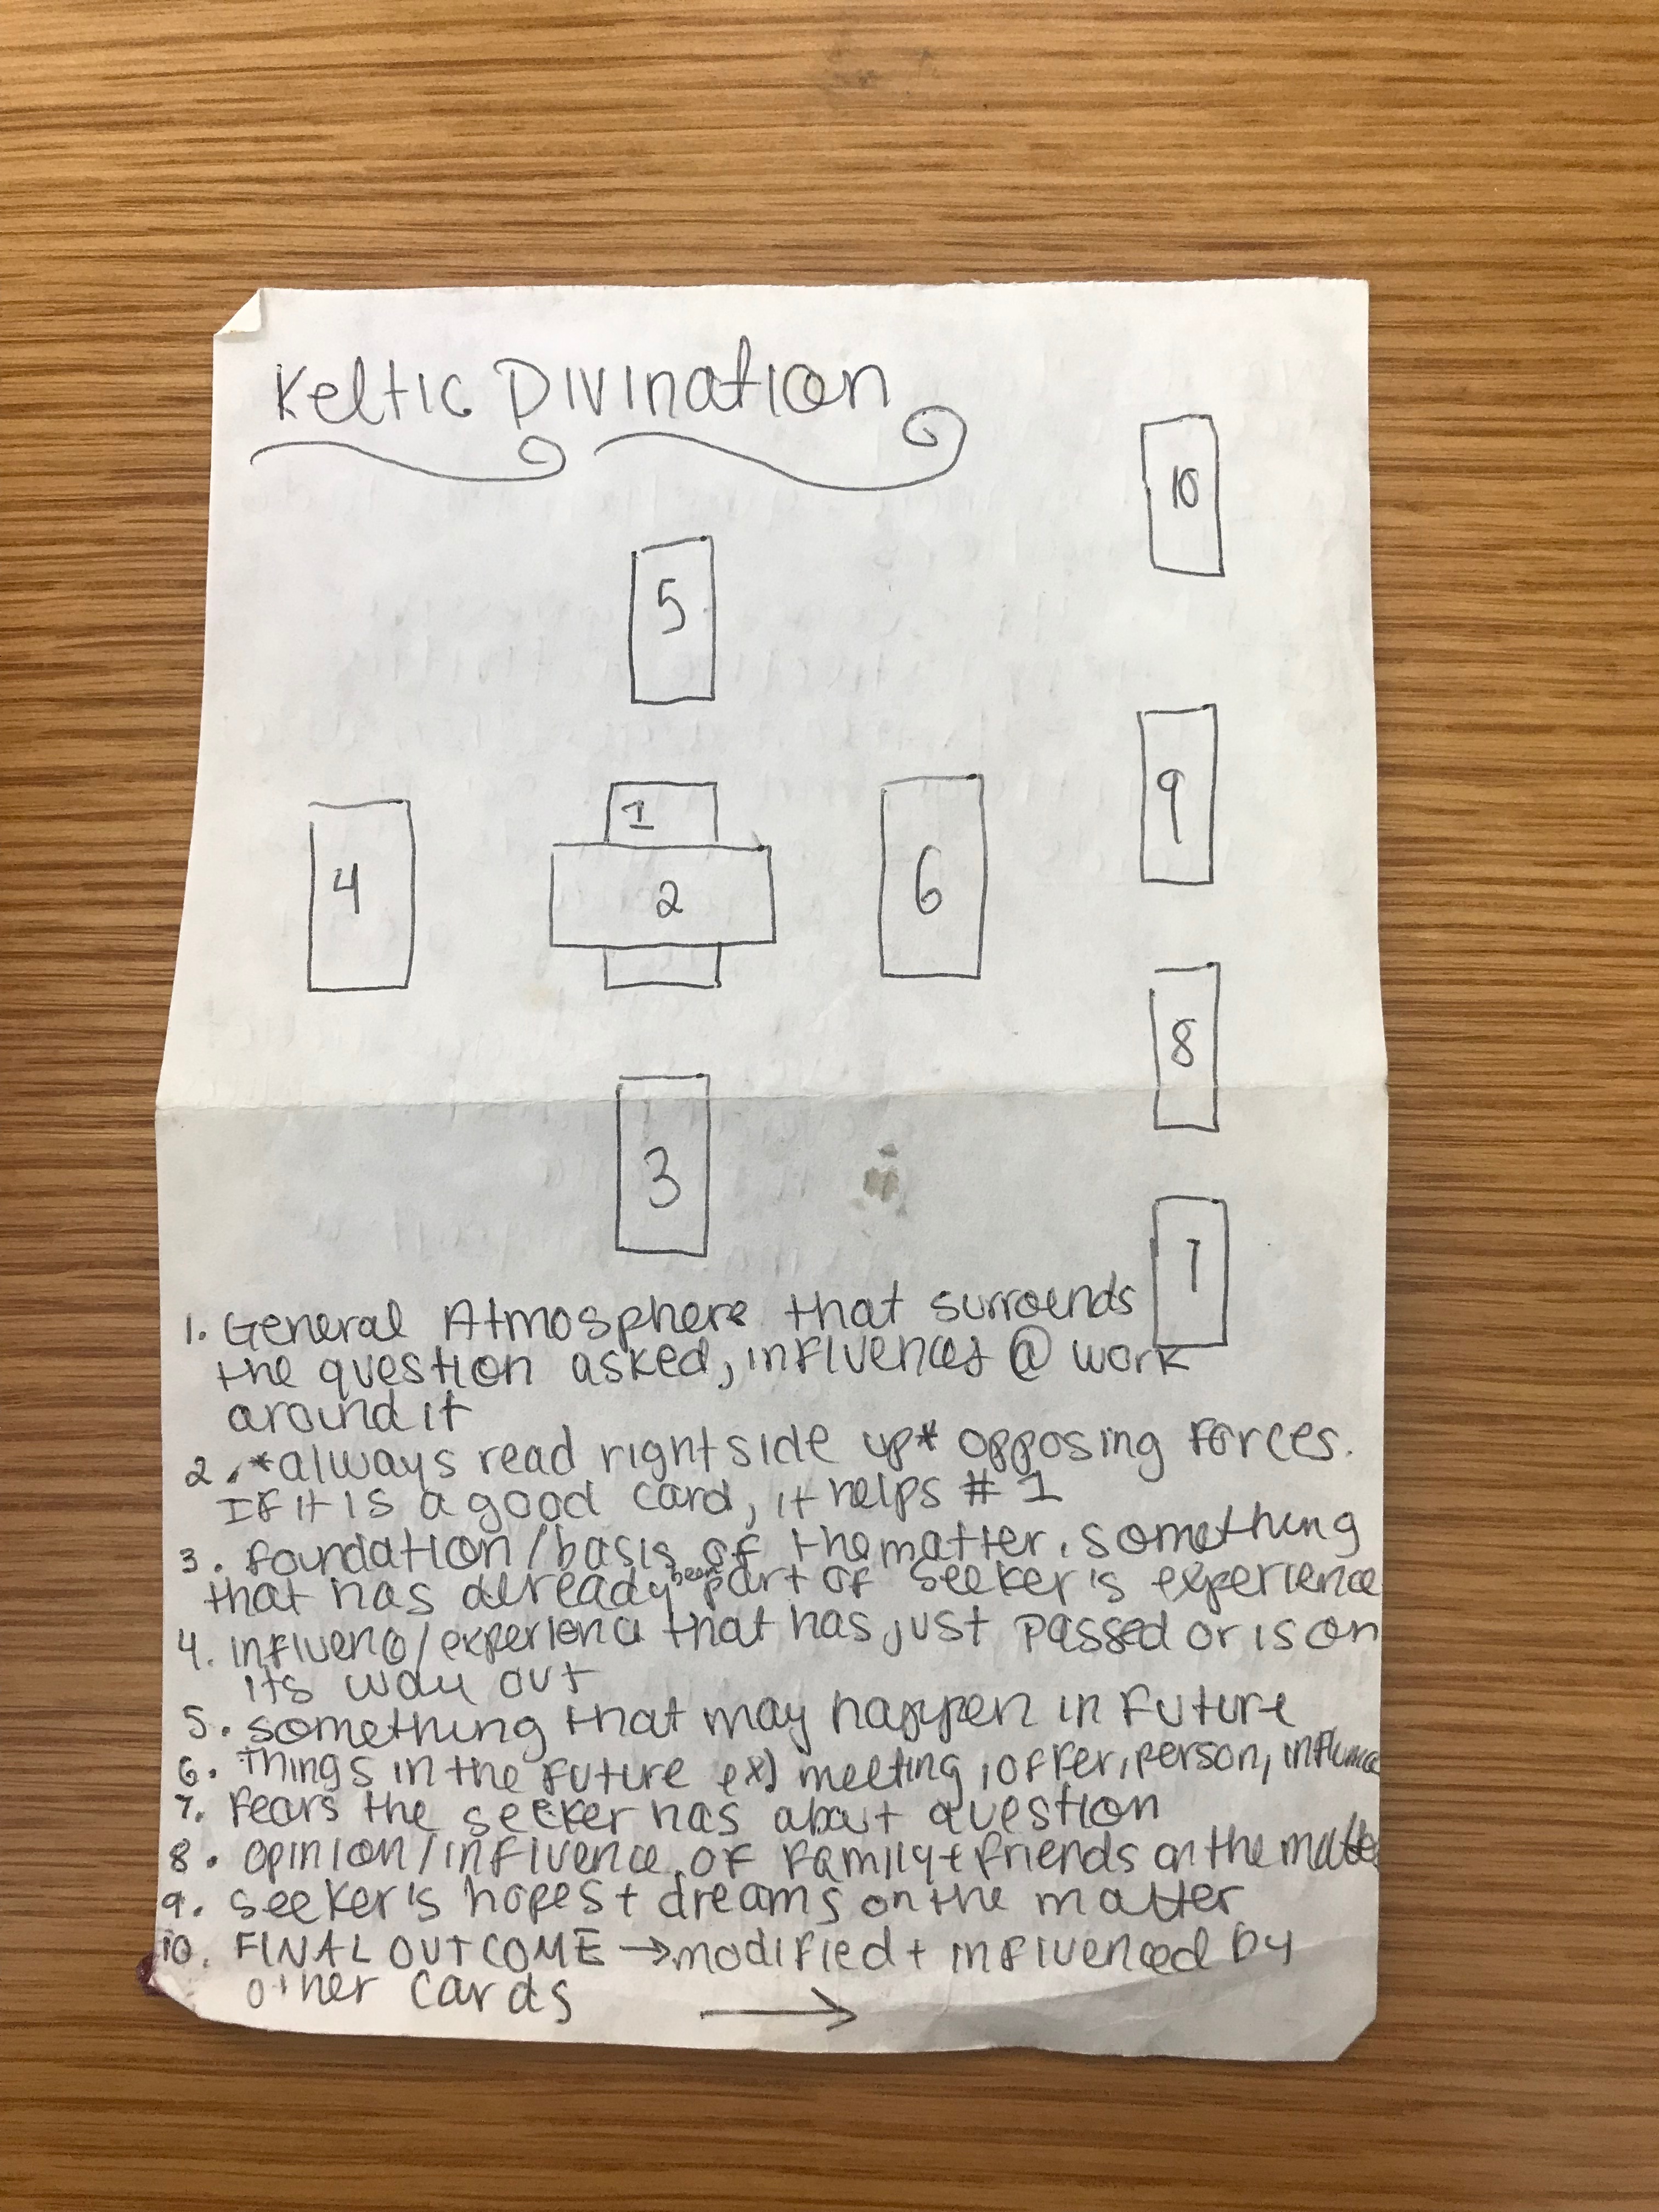 Keltic Divination
10
5
9
1
4
2
6
8
3
7
1. General Atmosphere that surrounds
the question asked, influences @ work
around it
2. *always read right side up* opposing forces.
If it is a good card, it helps # 1
3. foundation/basis of the matter. something
that has already been part of seeker's experience
4. influence/experience that has just passed or is on
its way out
5. something that may happen in future
6. things in the future ex) meeting, offer, person, influence
7. fears the seeker has about question
8. opinion/influence of family + friends on the matter
9. seeker's hopes + dreams on the matter
10. FINAL OUTCOME → modified + influenced by
other cards →